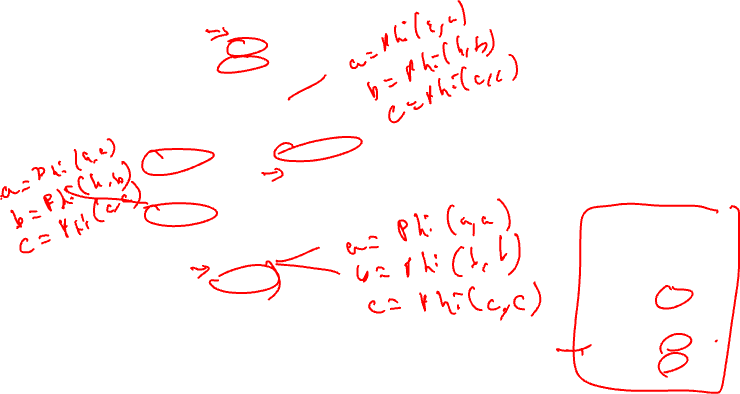 a=Phi(a,a)
b=Phi(b,b)
c=Phi(c,c)
a=Phi(a,a)
b=Phi(b,b)
c=Phi(c,c)
a= Phi(a,a)
b= Phi(b,b)
c= Phi(c,c)